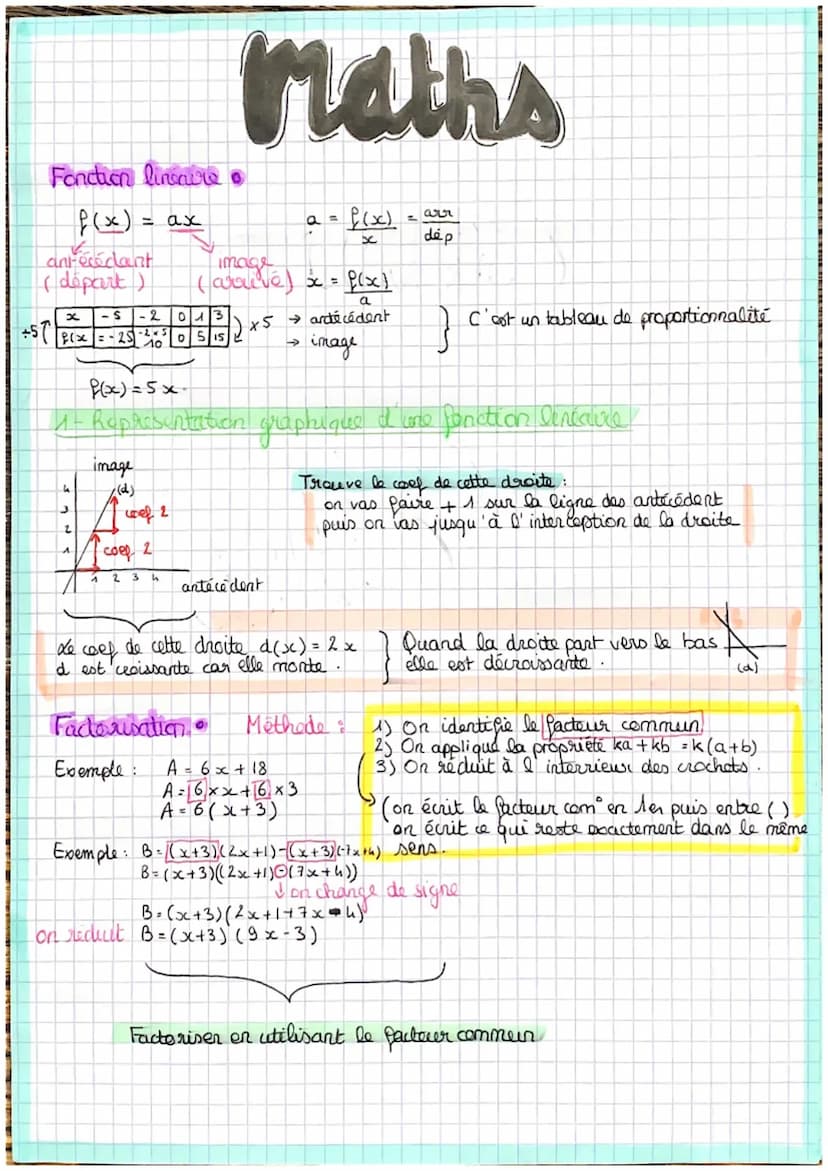 Maths
Fonction linéaire •
f(x) = ax
a = f(x)/x = arr/dép
antécédant image
(départ) (arrivé) x = f(x)/a
x -5 -2 0 1 3 → antécédent
÷5 f(x = -25 -2×5 10 0 5 15 ×5 → image } C'est un tableau de proportionnalité
f(x) = 5x.
1- Représentation graphique d'une fonction linéaire
image
(d)
4 3 2 1
coef 2
coef 2
1 2 3 4
antécédent
Trouve le coef de cette droite :
on vas faire + 1 sur la ligne des antécédent
puis on vas jusqu'à l'interception de la droite
Le coef de cette droite d(x) = 2x
d est croissante car elle monte.
Quand la droite part vers le bas
elle est décroissante.
(d)
Factorisation • Méthode :
1) On identifie le facteur commun
2) On applique la propriété ka + kb = k(a+b)
3) On réduit à l'interrieur des crochets.
(on écrit le facteur com° en 1er puis entre ( )
on écrit ce qui reste exactement dans le même
sens.
Exemple : A = 6x + 18
A = 6 × x + 6 × 3
A = 6(x+3)
Exemple : B = (x+3)(2x+1)-(x+3)(-7x+4)
B = (x+3)((2x+1)-(7x+4))
↓ on change de signe
B = (x+3)(2x+1+7x-4)
on réduit B = (x+3)(9x-3)
Factoriser en utilisant le facteur commun